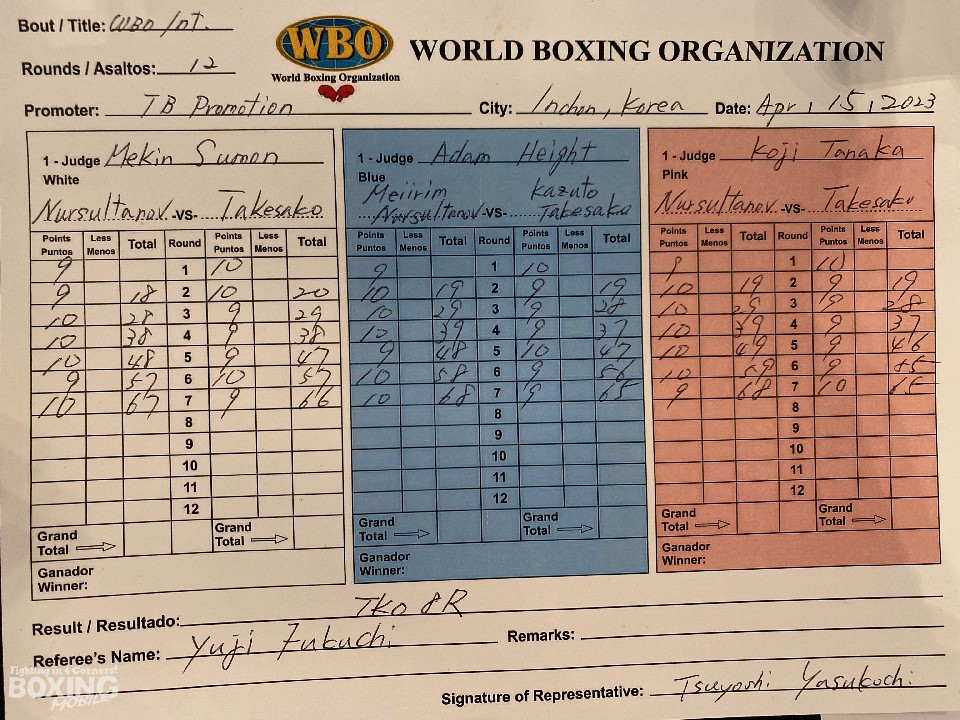 Bout / Title: WBO Int.
WBO
World Boxing Organization
WORLD BOXING ORGANIZATION
Rounds / Asaltos: 12
Promoter: TB Promotion City: Inchon, Korea Date: Apr, 15, 2023
1 - Judge Mekin Sumon
White
Nursultanov -VS- Takesako
Points Puntos Less Menos Total Round Points Puntos Less Menos Total
9 1 10
9 18 2 10 20
10 28 3 9 29
10 38 4 9 38
10 48 5 9 47
9 57 6 10 57
10 67 7 9 66
8
9
10
11
12
Grand Total Grand Total
Ganador
Winner:
1 - Judge Adam Height
Blue
Meiirim Kazuto
Nursultanov -VS- Takesako
Points Puntos Less Menos Total Round Points Puntos Less Menos Total
9 1 10
10 19 2 9 19
10 29 3 9 28
10 39 4 9 37
9 48 5 10 47
10 58 6 9 56
10 68 7 9 65
8
9
10
11
12
Grand Total Grand Total
Ganador
Winner:
1 - Judge Koji Tanaka
Pink
Nursultanov -VS- Takesako
Points Puntos Less Menos Total Round Points Puntos Less Menos Total
9 1 10
10 19 2 9 19
10 29 3 9 28
10 39 4 9 37
10 49 5 9 46
10 59 6 9 55
9 68 7 10 65
8
9
10
11
12
Grand Total Grand Total
Ganador
Winner:
Result / Resultado: TKO 8R
Referee's Name: Yuji Fukuchi Remarks:
Signature of Representative: Tsuyoshi Yasukochi
Fighting in 4 Corners!
BOXING
MOBILE